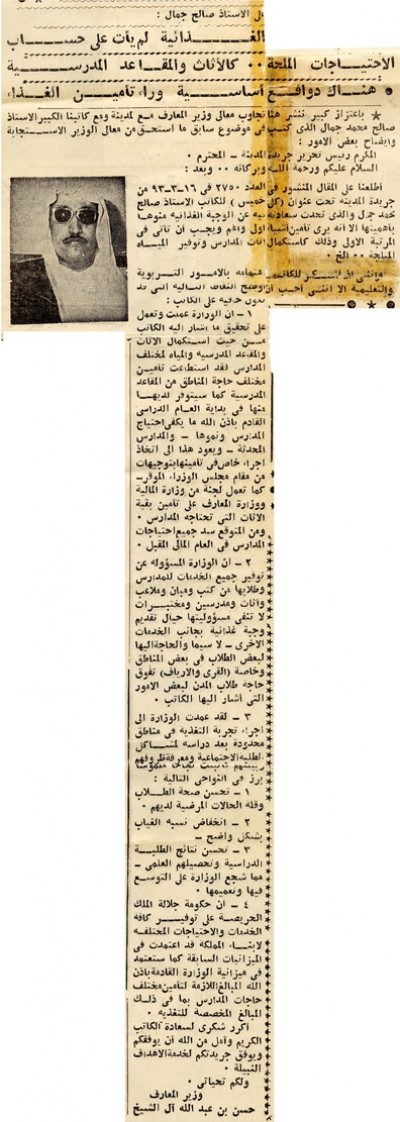 الاستاذ صالح جمال :
الغــذائية لم يأت على حساب
الاحتياجات الملحة ٠٠ كالأثاث والمقاعد المدرسية
★ هناك دوافع أساسية وراء تأمين الغذاء
باعتزاز كبير ننشر هنا تجاوب معالى وزير المعارف مع المدينة ومع كاتبنا الكبير الاستاذ
صالح محمد جمال الذى كتب فى موضوع سابق ما استحق من معالى الوزير الاستجابة
وايضاح بعض الامور :
المكرم رئيس تحرير جريدة المدينة — المحترم ٠
السلام عليكم ورحمة الله وبركاته ٠٠ وبعد :
اطلعنا على المقال المنشور فى العدد ٢٧٥٠ فى ١٦-٣-٩٣ من
جريدة المدينة تحت عنوان (كل خميس) للكاتب الاستاذ صالح
محمد جمال والذى تحدث سعادته فيه عن الوجبة الغذائية منوها
بأهميتها الا انه يرى تأمين أشياء أولى وأهم ويجب أن تأتى فى
المرتبة الاولى وذلك كاستكمال أثاث المدارس وتوفير المياه
المثلجة ٠٠ الخ ٠
وانى اذ أشكر للكاتب اهتمامه بالامور التربوية
والتعليمية الا اننى أحب أن أوضح النقاط التالية التى قد
تكون خافية على الكاتب :
١ — ان الوزارة عملت وتعمل
على تحقيق ما أشار اليه الكاتب
من حيث استكمال الاثاث
والمقاعد المدرسية والمياه لمختلف
المدارس فقد استطاعت تأمين
مختلف حاجة المناطق من المقاعد
المدرسية كما سيتوفر لديها
منها فى بداية العام الدراسى
القادم باذن الله ما يكفى احتياج
المدارس ونموها — والمدارس
المحدثة — ويعود هذا الى اتخاذ
اجراء خاص فى تأمينها بتوجيهات
من مقام مجلس الوزراء الموقر —
كما تعمل لجنة من وزارة المالية
ووزارة المعارف على تأمين بقية
الاثاث التى تحتاجه المدارس ٠
ومن المتوقع سد جميع احتياجات
المدارس فى العام المالى المقبل ٠
٢ — ان الوزارة المسؤولة عن
توفير جميع الخدمات للمدارس
وطلابها من كتب ومبان وملاعب
وأثاث ومدرسين ومختبرات
لا تنفى مسؤوليتها حيال تقديم
وجبة غذائية بجانب الخدمات
الاخرى — لا سيما والحاجة اليها
لبعض الطلاب فى بعض المناطق
وخاصة (القرى والارياف) تفوق
حاجة طلاب المدن لبعض الامور
التى أشار اليها الكاتب ٠
٣ — لقد عمدت الوزارة الى
اجراء تجربة التغذية فى مناطق
محدودة بعد دراسة لمشاكل
الطلبة الاجتماعية ومعرفة ظروفهم
برز فى النواحى التالية :
١ — تحسن صحة الطلاب
وقلة الحالات المرضية لديهم ٠
٢ — انخفاض نسبة الغياب
بشكل واضح —
٣ — تحسن نتائج الطلبة
الدراسية وتحصيلهم العلمى —
مما شجع الوزارة على التوسع
فيها وتعميمها ٠
٤ — ان حكومة جلالة الملك
الحريصة على توفير كافة
الخدمات والاحتياجات المختلفة
لابناء المملكة قد اعتمدت فى
الميزانيات السابقة كما ستعتمد
فى ميزانية الوزارة القادمة باذن
الله المبالغ اللازمة لتأمين مختلف
حاجات المدارس بما فى ذلك
المبالغ المخصصة للتغذية ٠
أكرر شكرى لسعادة الكاتب
الكريم وآمل من الله أن يوفقكم
ويوفق جريدتكم لخدمة الاهداف
النبيلة ٠
ولكم تحياتى ٠
وزير المعارف
حسن بن عبد الله آل الشيخ